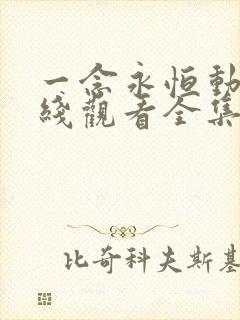 一念永恒動
綫觀看全集
比奇科夫斯基